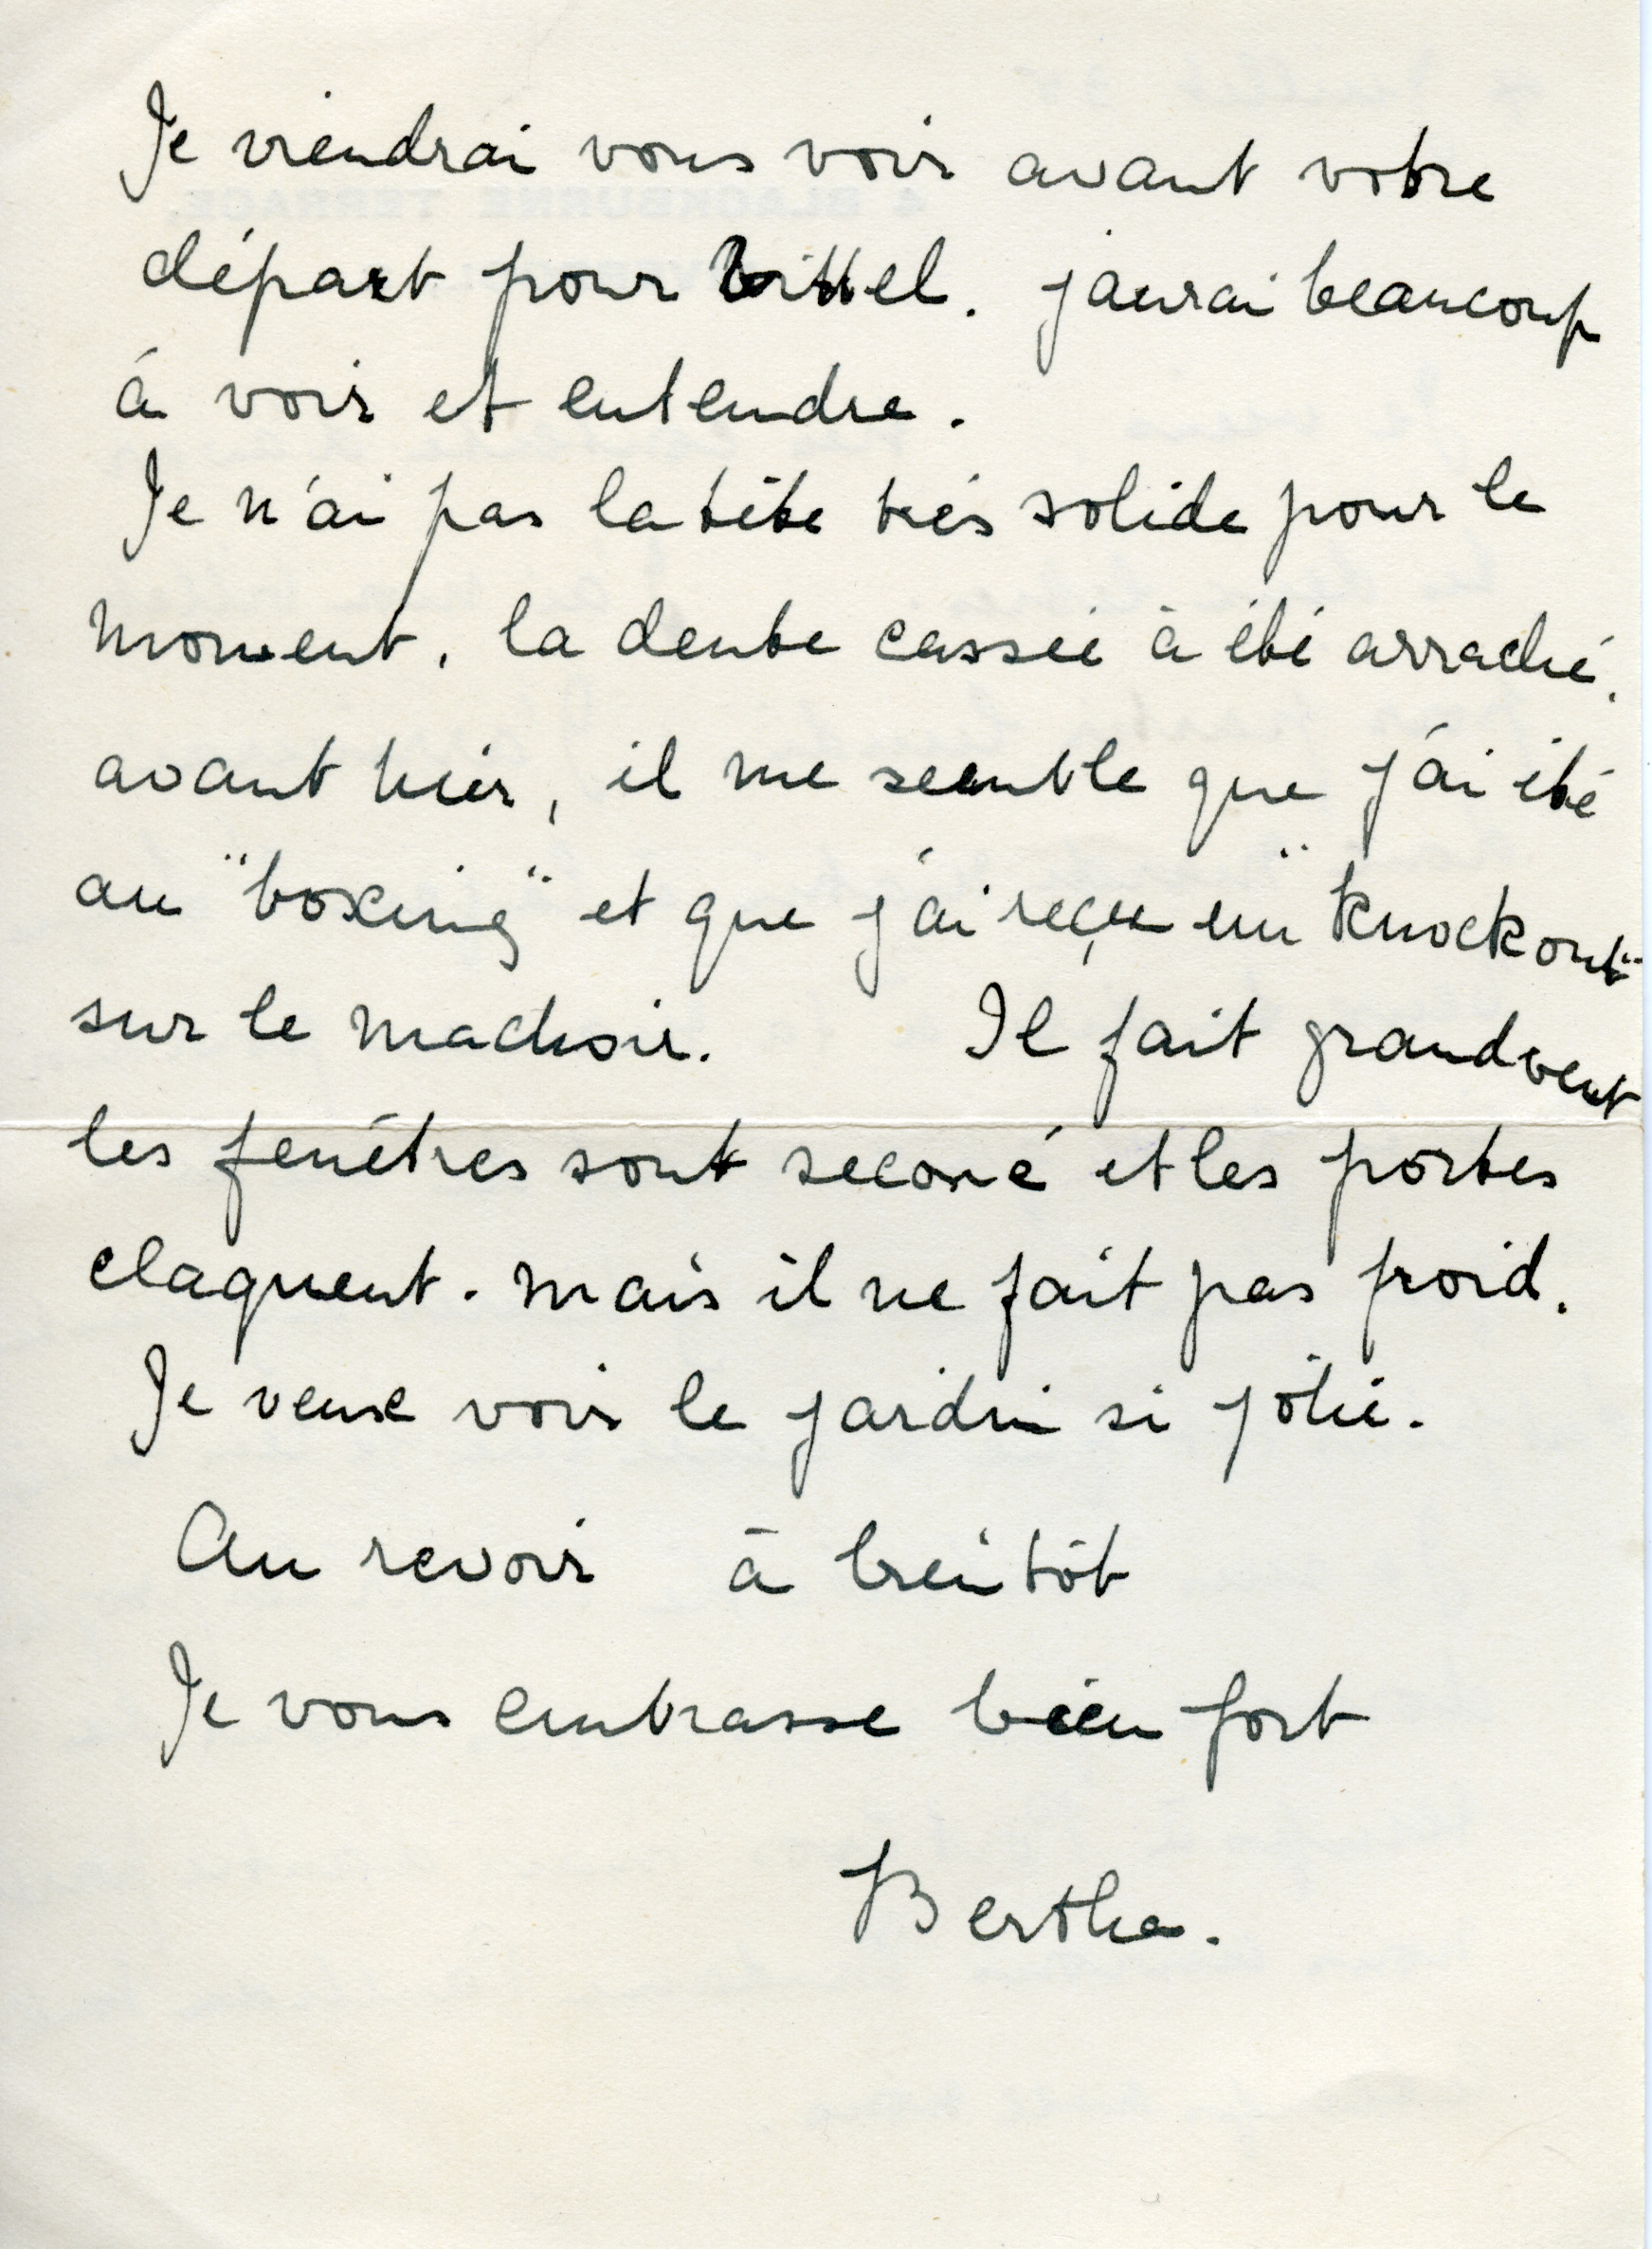 Je viendrai vous voir avant votre
départ pour Vittel. j'aurai beaucoup
à voir et entendre.
Je n'ai pas la tête très solide pour le
moment, la dente cassée à été arraché,
avant hier, il me semble que j'ai été
au "boxing" et que j'ai reçue un "Knockout"
sur le machoir. Il fait grand vent
les fenêtres sont secoué et les portes
claquent. mais il ne fait pas froid.
Je veux voir le jardin si jolie.
Au revoir à bientôt
Je vous embrasse bien fort
Bertha.